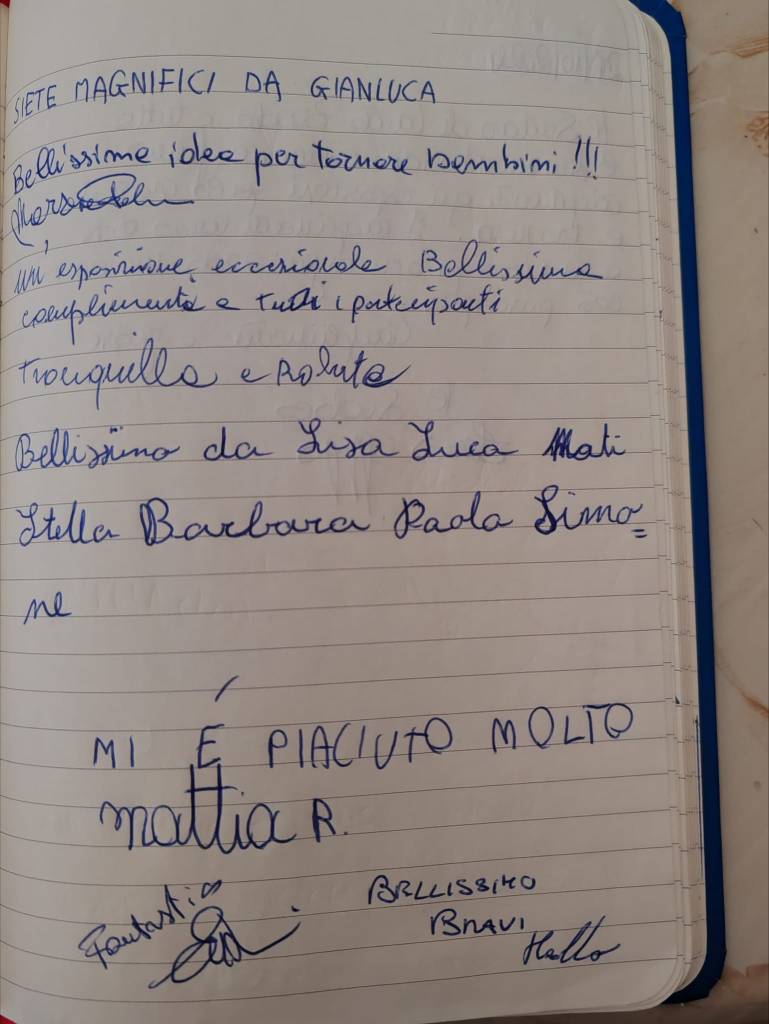 SIETE MAGNIFICI DA GIANLUCA
Bellissima idea per tornare bambini!!!
un esposizione eccezionale Bellissima
complimenti a tutti i partecipanti
Tranquilla e
Bellissimo da Lisa Luca Mati
Stella Barbara Paola Simo=
ne
MI É PIACIUTO MOLTO
mattia R.
Fantastic
BELLISSIMO
BRAVI